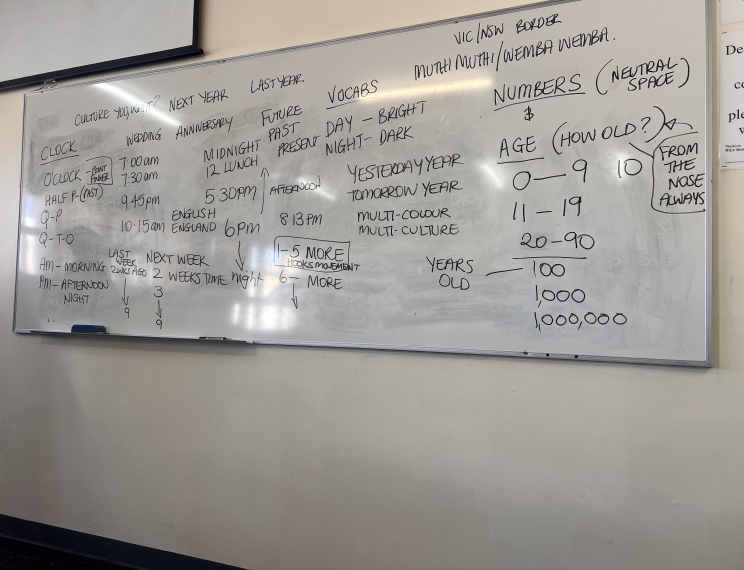 VIC/NSW BORDER
MUTHI MUTHI/WEMBA WEMBA.
CULTURE YOU
NEXT YEAR
LAST YEAR
CLOCK
O'CLOCK
POINT FINGER
HALF P-(PAST)
Q-P
Q-T-O
AM-MORNING
PM-AFTERNOON
NIGHT
WEDDING
7:00am
7:30am
9:45pm
10:15am
ANNIVERSARY
MIDNIGHT
12 LUNCH
5:30pm
ENGLISH
ENGLAND
6pm
night
AFTERNOON
FUTURE
PAST
PRESENT
8:13pm
LAST
WEEK
2WKS AGO
9
NEXT WEEK
2 WEEKS TIME
3
9
1-5 MORE
HOOKS MOVEMENT
6- MORE
VOCABS
DAY - BRIGHT
NIGHT- DARK
YESTERDAY YEAR
TOMORROW YEAR
MULTI-COLOUR
MULTI-CULTURE
NUMBERS (NEUTRAL SPACE)
$
AGE (HOW OLD?)
FROM
THE
NOSE
ALWAYS
0 — 9 10
11 - 19
20-90
YEARS OLD — 100
1,000
1,000,000